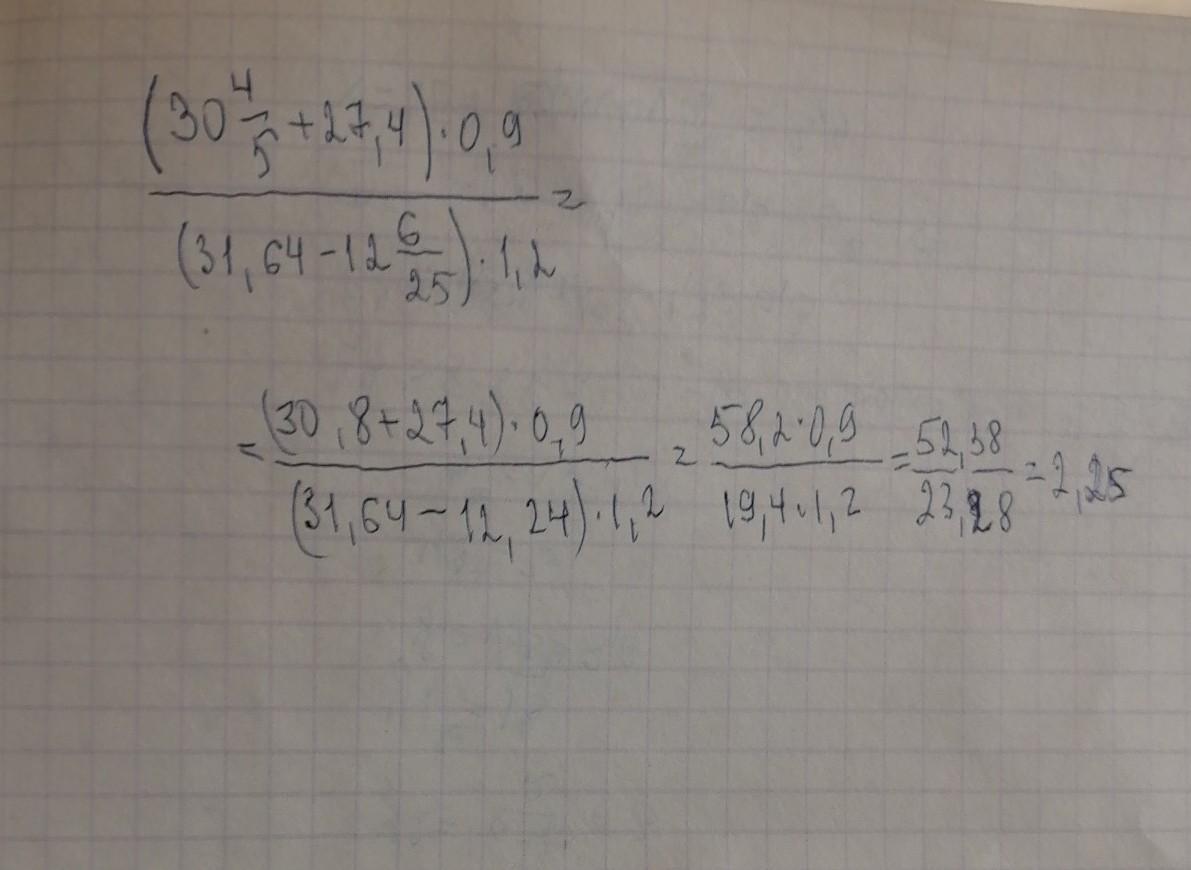 (30 4/5 + 27,4) · 0,9
(31,64 - 12 6/25) · 1,2 =
= (30,8 + 27,4) · 0,9 / (31,64 - 12,24) · 1,2 = 58,2 · 0,9 / 19,4 · 1,2 = 52,38 / 23,28 = 2,25